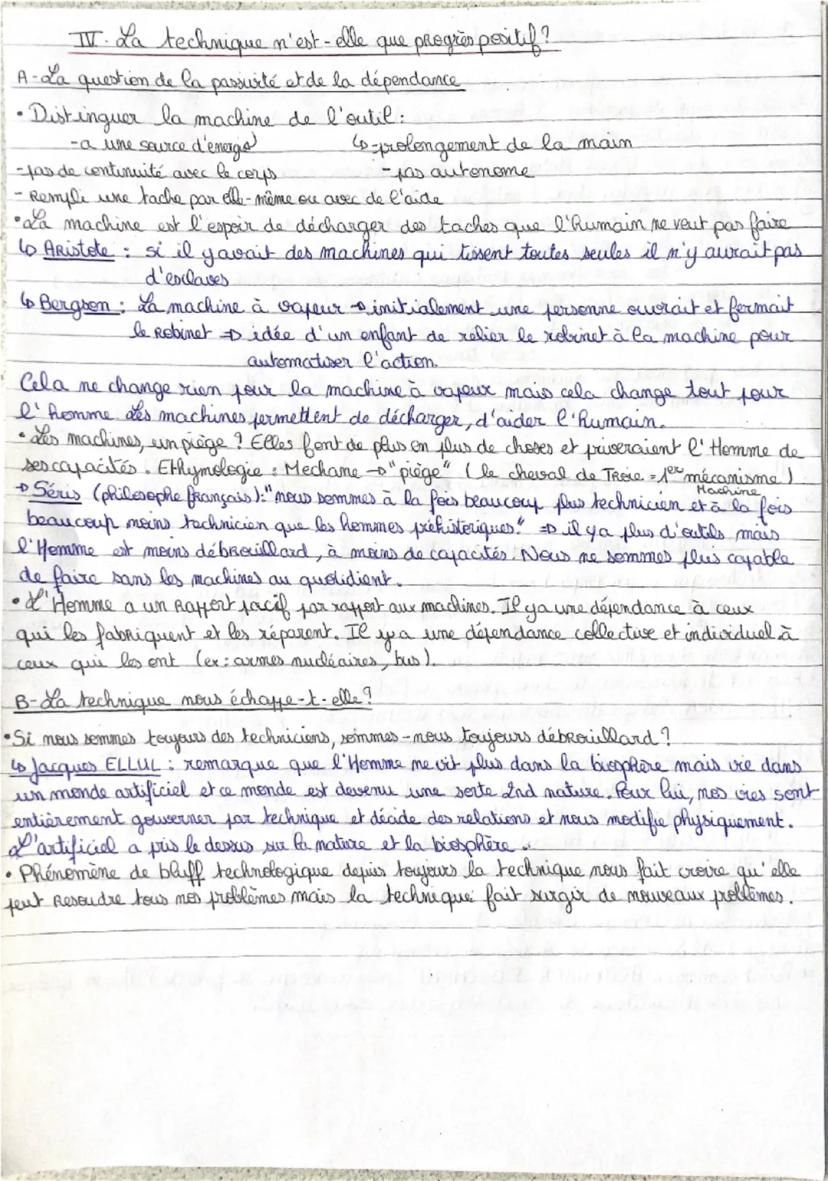 IV. La technique n'est-elle que progrès positif?
A-La question de la passivité et de la dépendance
• Distinguer la machine de l'outil:
-a une source d'énergie ↳-prolongement de la main
-pas de continuité avec le corps -pas autonome
-Rempli une tache par elle-même ou avec de l'aide
•La machine est l'espoir de décharger des taches que l'humain ne veut pas faire
↳ Aristote : si il y avait des machines qui tissent toutes seules il n'y aurait pas
d'esclaves
↳ Bergson : La machine à vapeur → initialement une personne ouvrait et fermait
le Robinet ⇒ idée d'un enfant de relier le robinet à la machine pour
automatiser l'action.
Cela ne change rien pour la machine à vapeur mais cela change tout pour
l'homme Les machines permettent de décharger, d'aider l'humain.
• Les machines, un piège ? Elles font de plus en plus de choses et priveraient l'Homme de
ses capacités. Ethymologie : Mechane → "piège" (le cheval de Troie = 1er mécanisme)
Machine
→ Séris (philosophe français): "nous sommes à la fois beaucoup plus technicien et à la fois
beaucoup moins technicien que les hommes préhistoriques." ⇒ il y a plus d'outils mais
l'Homme est moins débrouillard, à moins de capacités. Nous ne sommes plus capable
de faire sans les machines au quotidient.
• L'Homme a un Rapport pacif par rapport aux machines. Il y a une dépendance à ceux
qui les fabriquent et les réparent. Il y a une dépendance collective et individuel à
ceux qui les ont (ex: armes nucléaires, bus).
B-La technique nous échappe-t-elle?
•Si nous sommes toujours des techniciens, sommes-nous toujours débrouillard ?
↳ Jacques ELLUL : remarque que l'Homme ne vit plus dans la biosphère mais vie dans
un monde artificiel et ce monde est devenu une sorte 2nd nature. Pour lui, nos vies sont
entièrement gouverner par technique et décide des relations et nous modifie physiquement.
L'artificiel a pris le dessus sur la nature et la biosphère.
• Phénomène de bluff technologique depuis toujours la technique nous fait croire qu'elle
peut Resoudre tous nos problèmes mais la technique fait surgir de nouveaux problèmes.